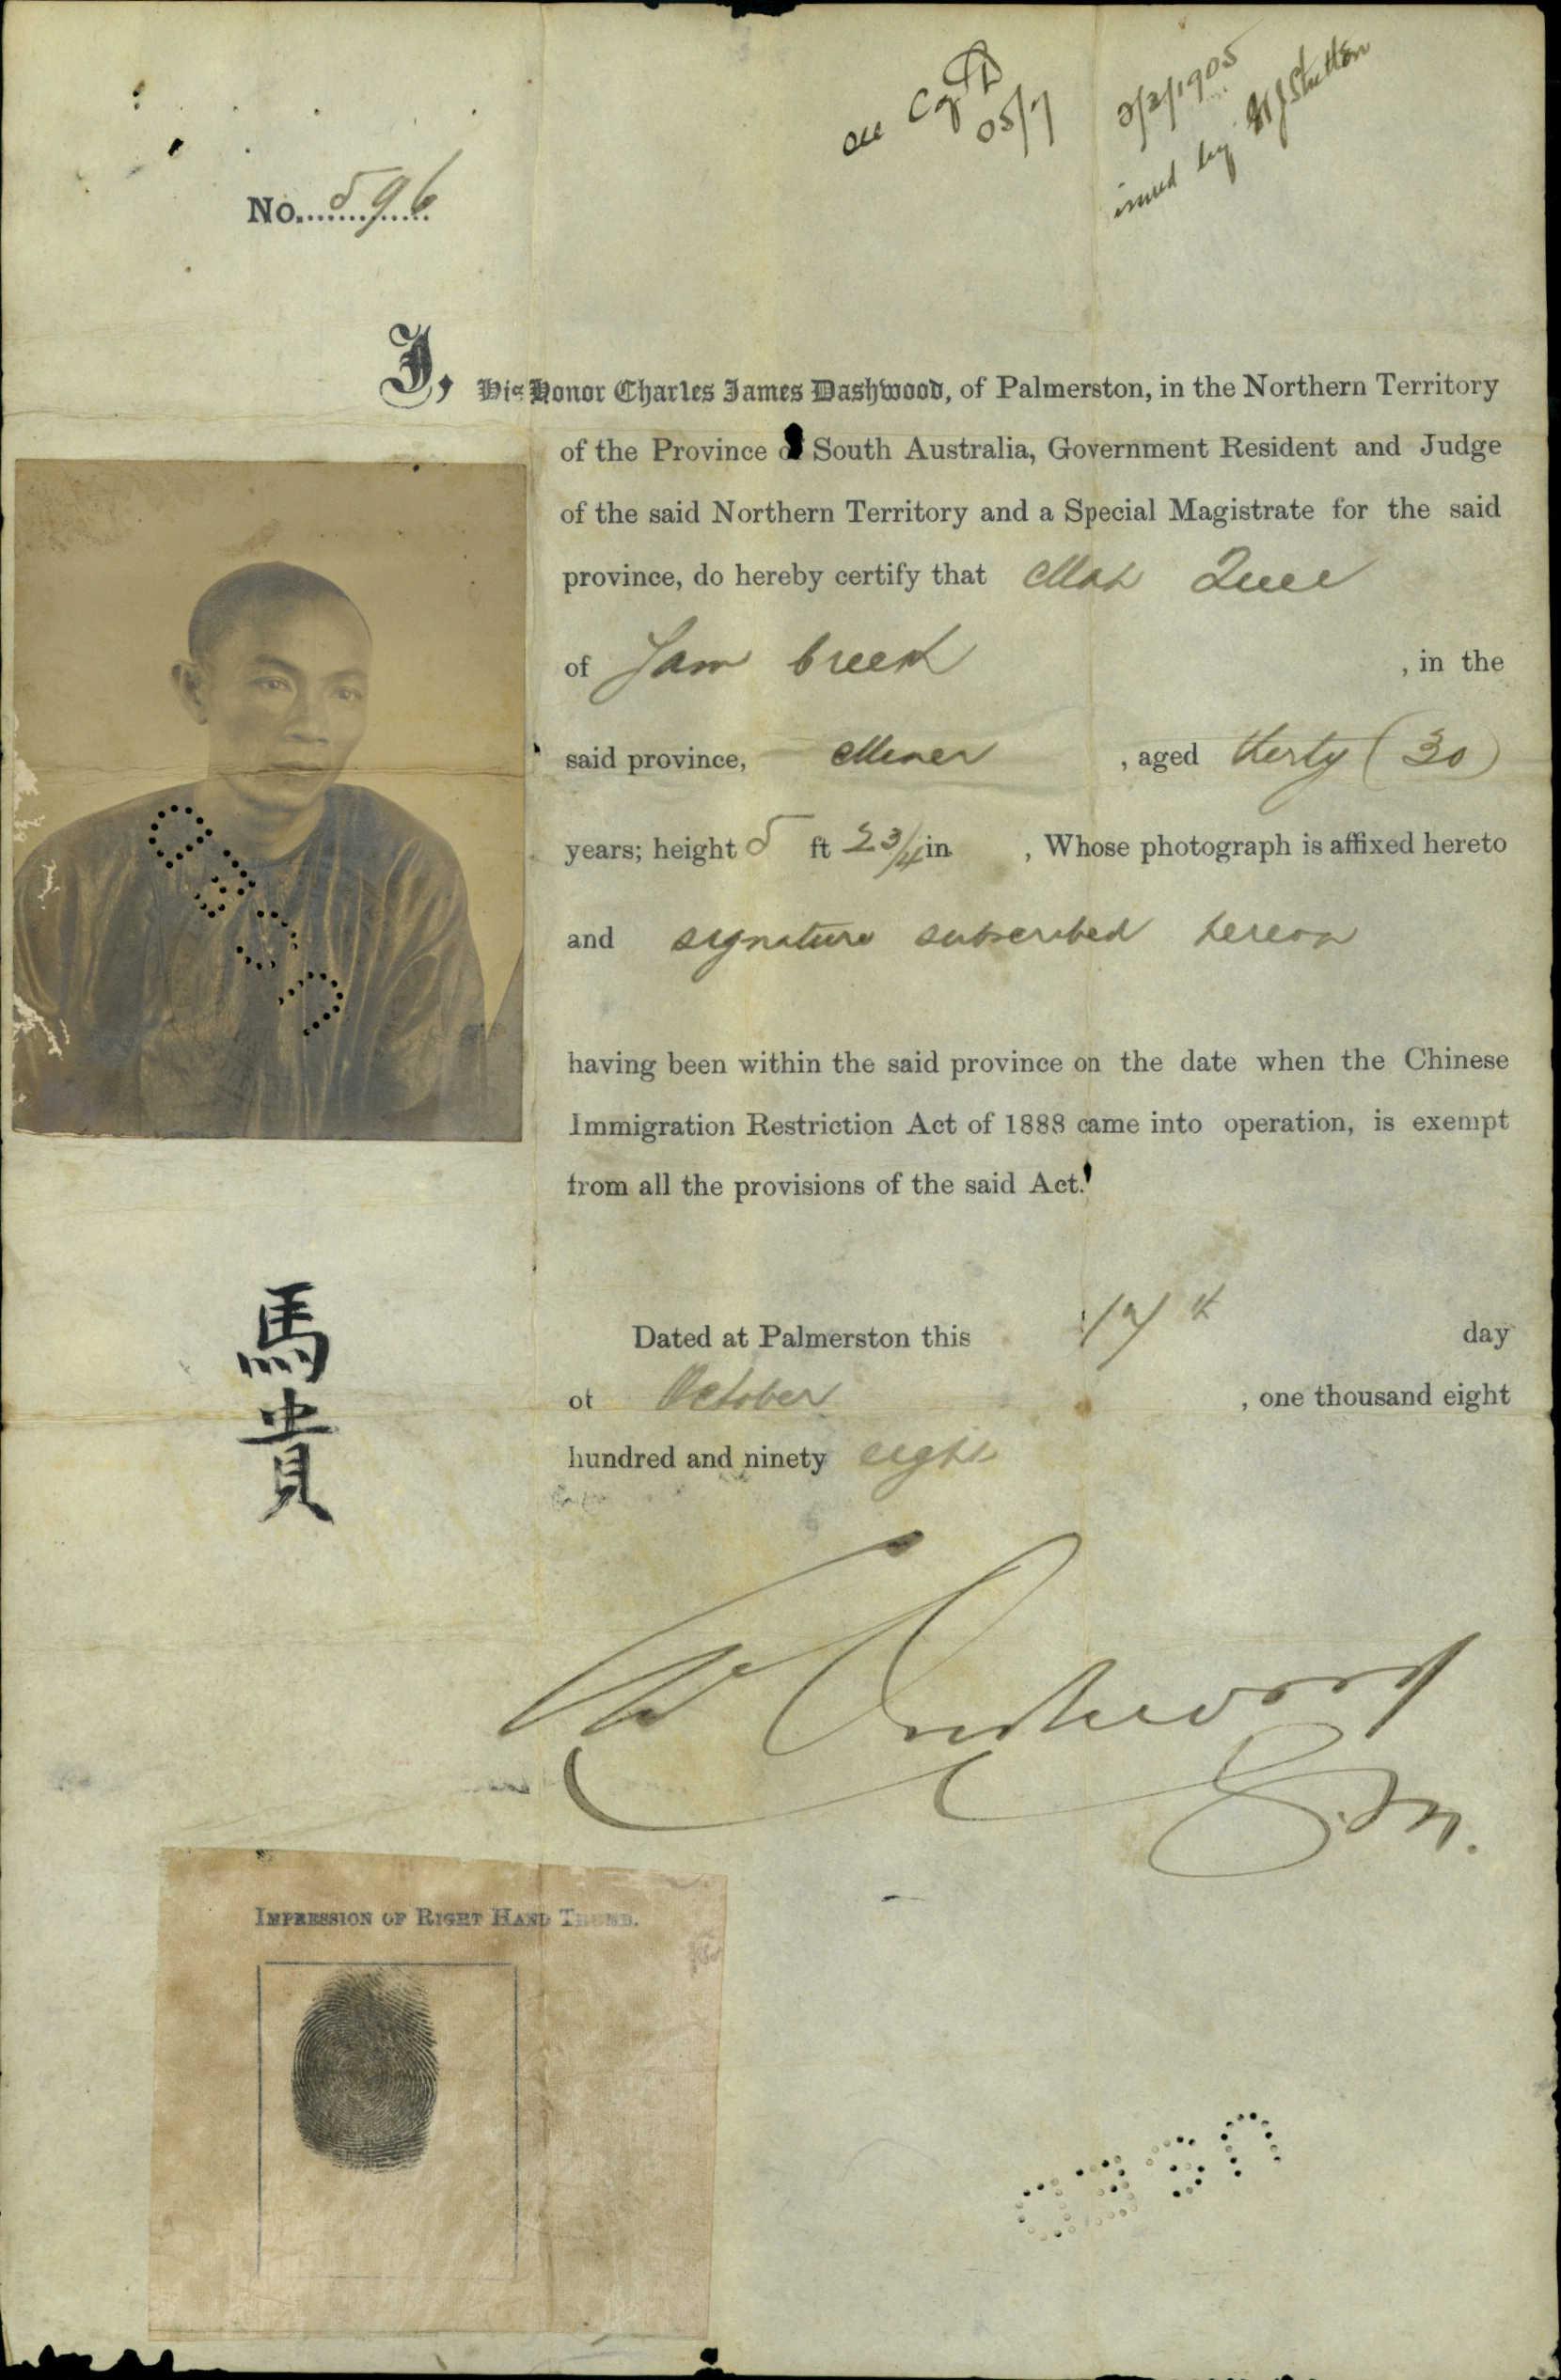 05/7
3/2/1905
issued by
No. 596
I, His Honor Charles James Dashwood, of Palmerston, in the Northern Territory
of the Province of South Australia, Government Resident and Judge
of the said Northern Territory and a Special Magistrate for the said
province, do hereby certify that Mah Quee
of Yam Creek , in the
said province, Miner , aged thirty (30)
years; height 5 ft 2 3/4 in , Whose photograph is affixed hereto
and signature subscribed hereon
having been within the said province on the date when the Chinese
Immigration Restriction Act of 1888 came into operation, is exempt
from all the provisions of the said Act.
馬貴
Dated at Palmerston this 17th day
of October , one thousand eight
hundred and ninety eight
C J Dashwood
S.M.
IMPRESSION OF RIGHT HAND THUMB.
USED